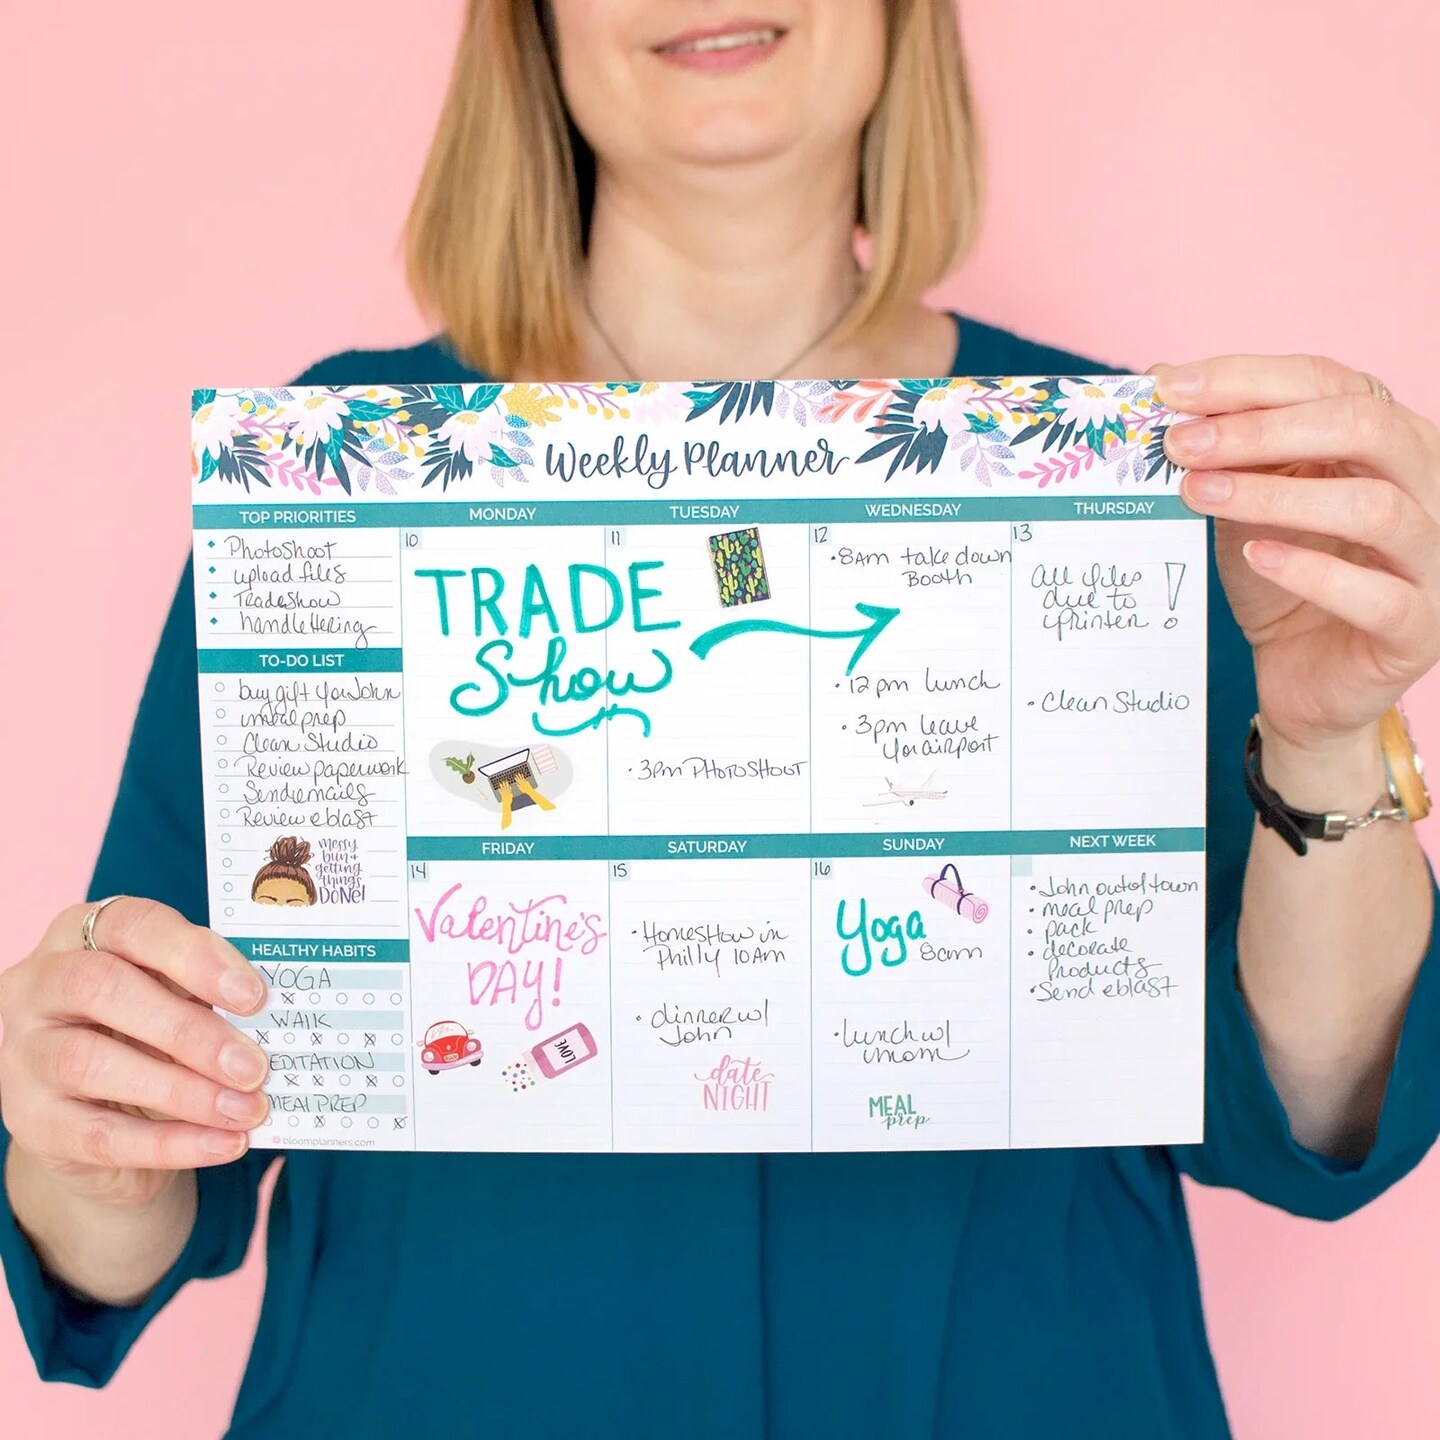 Weekly Planner
TOP PRIORITIES
Photoshoot
upload files
Tradeshow
handlettering
TO-DO LIST
buy gift for John
meal prep
Clean Studio
Review paperwork
Send emails
Review eblast
messy
bun +
getting
things
DONE!
HEALTHY HABITS
YOGA
WALK
EDITATION
MEAL PREP
bloomplanners.com
MONDAY
10
TRADE
Show
TUESDAY
11
• 3pm PHOTOSHOOT
WEDNESDAY
12
• 8Am take down
Booth
• 12pm lunch
• 3pm leave
for airport
THURSDAY
13
All files
due to
printer!
• Clean Studio
FRIDAY
14
Valentine's
DAY!
LOVE
SATURDAY
15
• HomeShow in
Philly 10Am
• dinner w/
John
date
NIGHT
SUNDAY
16
Yoga
8am
• lunch w/
mom
MEAL
prep
NEXT WEEK
• John out of town
• meal prep
• pack
• decorate
Products
• Send eblast